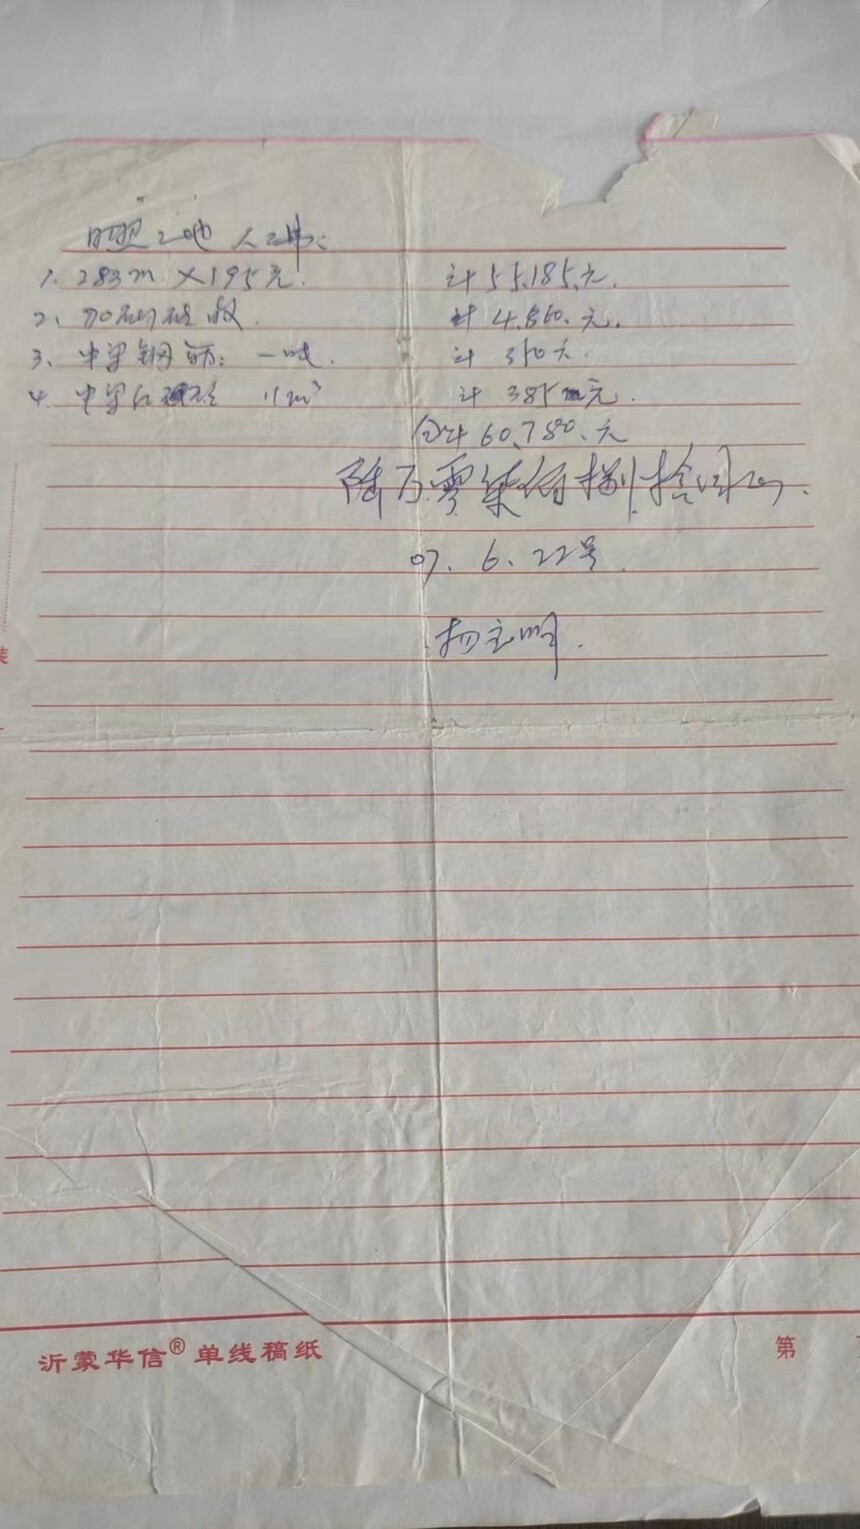 日照工地 人工费：
1. 283m × 195元. 计 55,185.元.
2、加 计 4.860.元.
3、中梁钢筋：一吨. 计 350元.
4. 中梁 11m³ 计 385元.
合计 60,780.元
陆万零柒佰捌拾
07. 6. 22号.
装
沂蒙华信® 单线稿纸 第